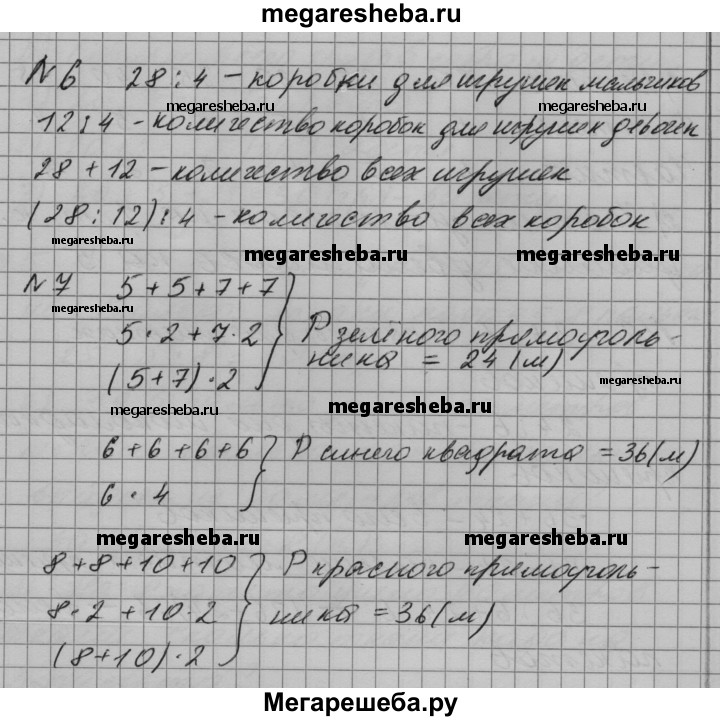 megaresheba.ru
№6 28 : 4 – коробки для игрушек мальчиков
megaresheba.ru megaresheba.ru
12 : 4 – количество коробок для игрушек девочек
28 + 12 – количество всех игрушек
(28 : 12) : 4 – количество всех коробок
megaresheba.ru megaresheba.ru megaresheba.ru
№7 5 + 5 + 7 + 7
megaresheba.ru
5 · 2 + 7 · 2 Р зелёного прямоуголь-
(5 + 7) · 2 ника = 24 (м)
megaresheba.ru megaresheba.ru megaresheba.ru
6 + 6 + 6 + 6 Р синего квадрата = 36 (м)
6 · 4
megaresheba.ru megaresheba.ru
8 + 8 + 10 + 10 Р красного прямоуголь-
8 · 2 + 10 · 2 ника = 36 (м)
(8 + 10) · 2
Мегарешеба.ру